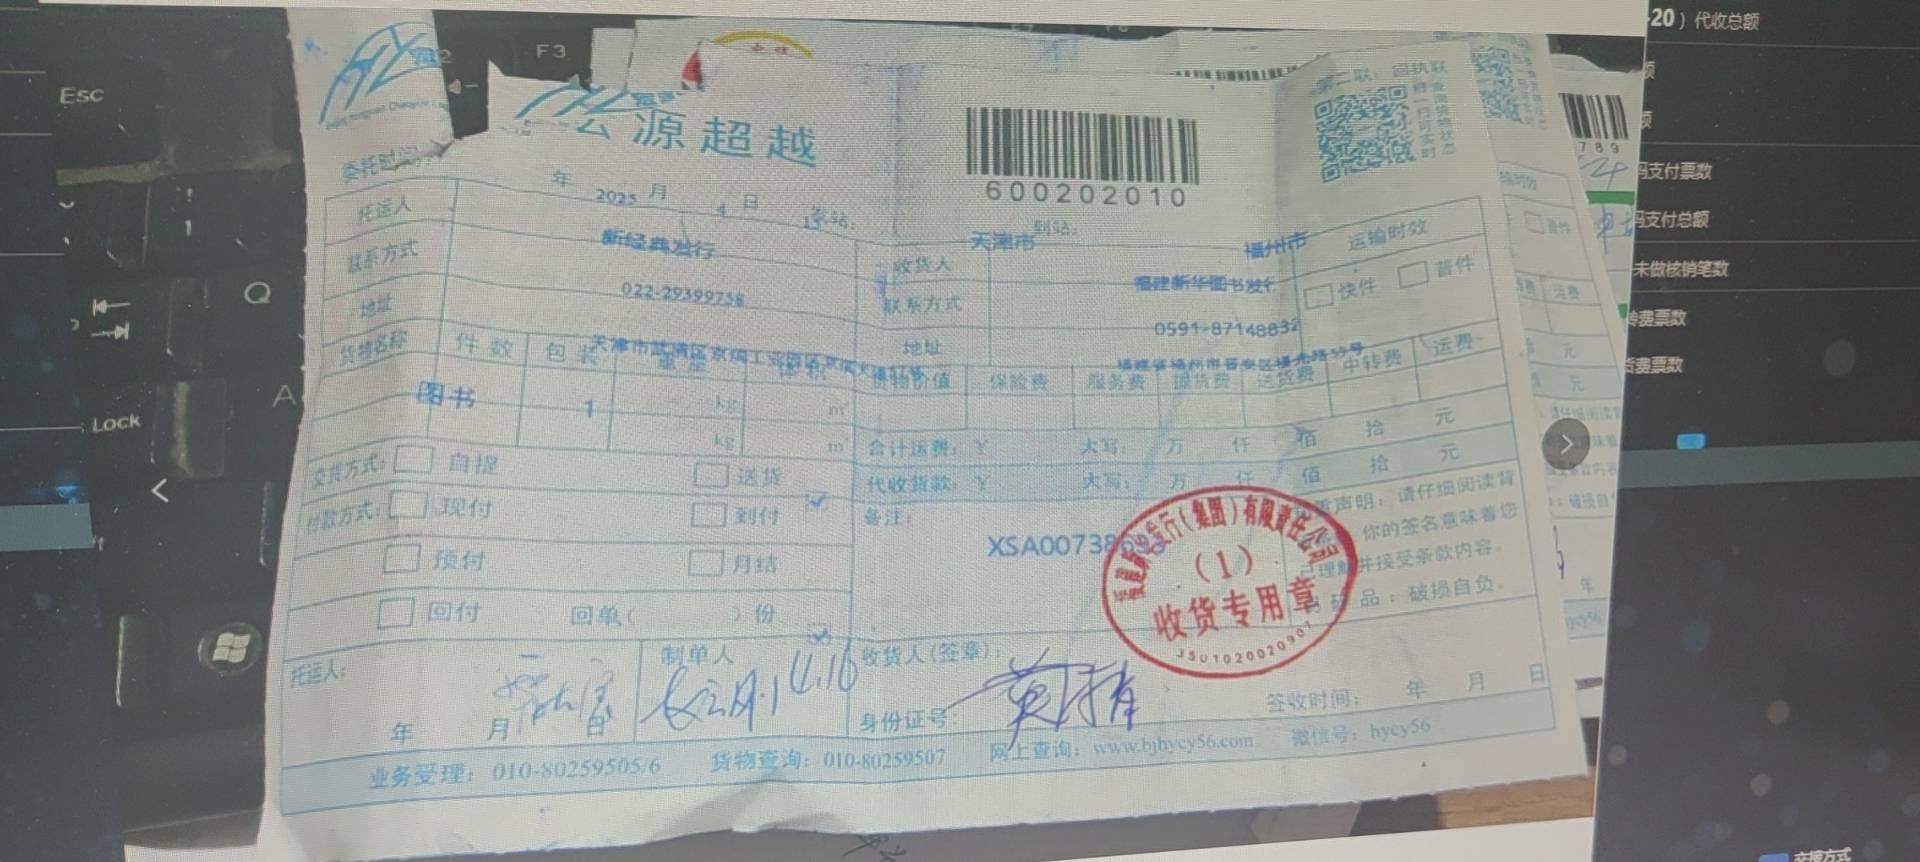 Esc
F3
Q
A
Lock
-20）代收总额
额
额
码支付票数
码支付总额
未做核销笔数
转费票数
货费票数
交接方式
789
宏源超越
600202010
第二联：回执联
委托时间
年 2025 月 4 日
到站：
天津市
福州市
托运人
新经典发行
收货人
福建新华图书发行
运输时效
快件
普件
联系方式
022-29399758
联系方式
0591-87148832
地址
地址
福建省福州市晋安区福光路59号
货物名称 件数 包装 重量 体积 货物价值 保险费 服务费 提货费 送货费 中转费 运费
图书 1 kg m³
kg m³
合计运费：￥ 大写： 万 仟 佰 拾 元
代收货款：￥ 大写： 万 仟 佰 拾 元
交货方式： 自提 送货
付款方式： 现付 到付
预付 月结
回付 回单（ ）份
备注：
声明：请仔细阅读背
你的签名意味着您
已理解并接受条款内容。
品：破损自负。
发行（集团）有限责任公司
（1）
收货专用章
托运人：
年 月 日
制单人
4.16
收货人（签章）：
身份证号：
签收时间： 年 月 日
业务受理：010-80259505/6 货物查询：010-80259507 网上查询：www.bjhycy56.com 微信号：hycy56